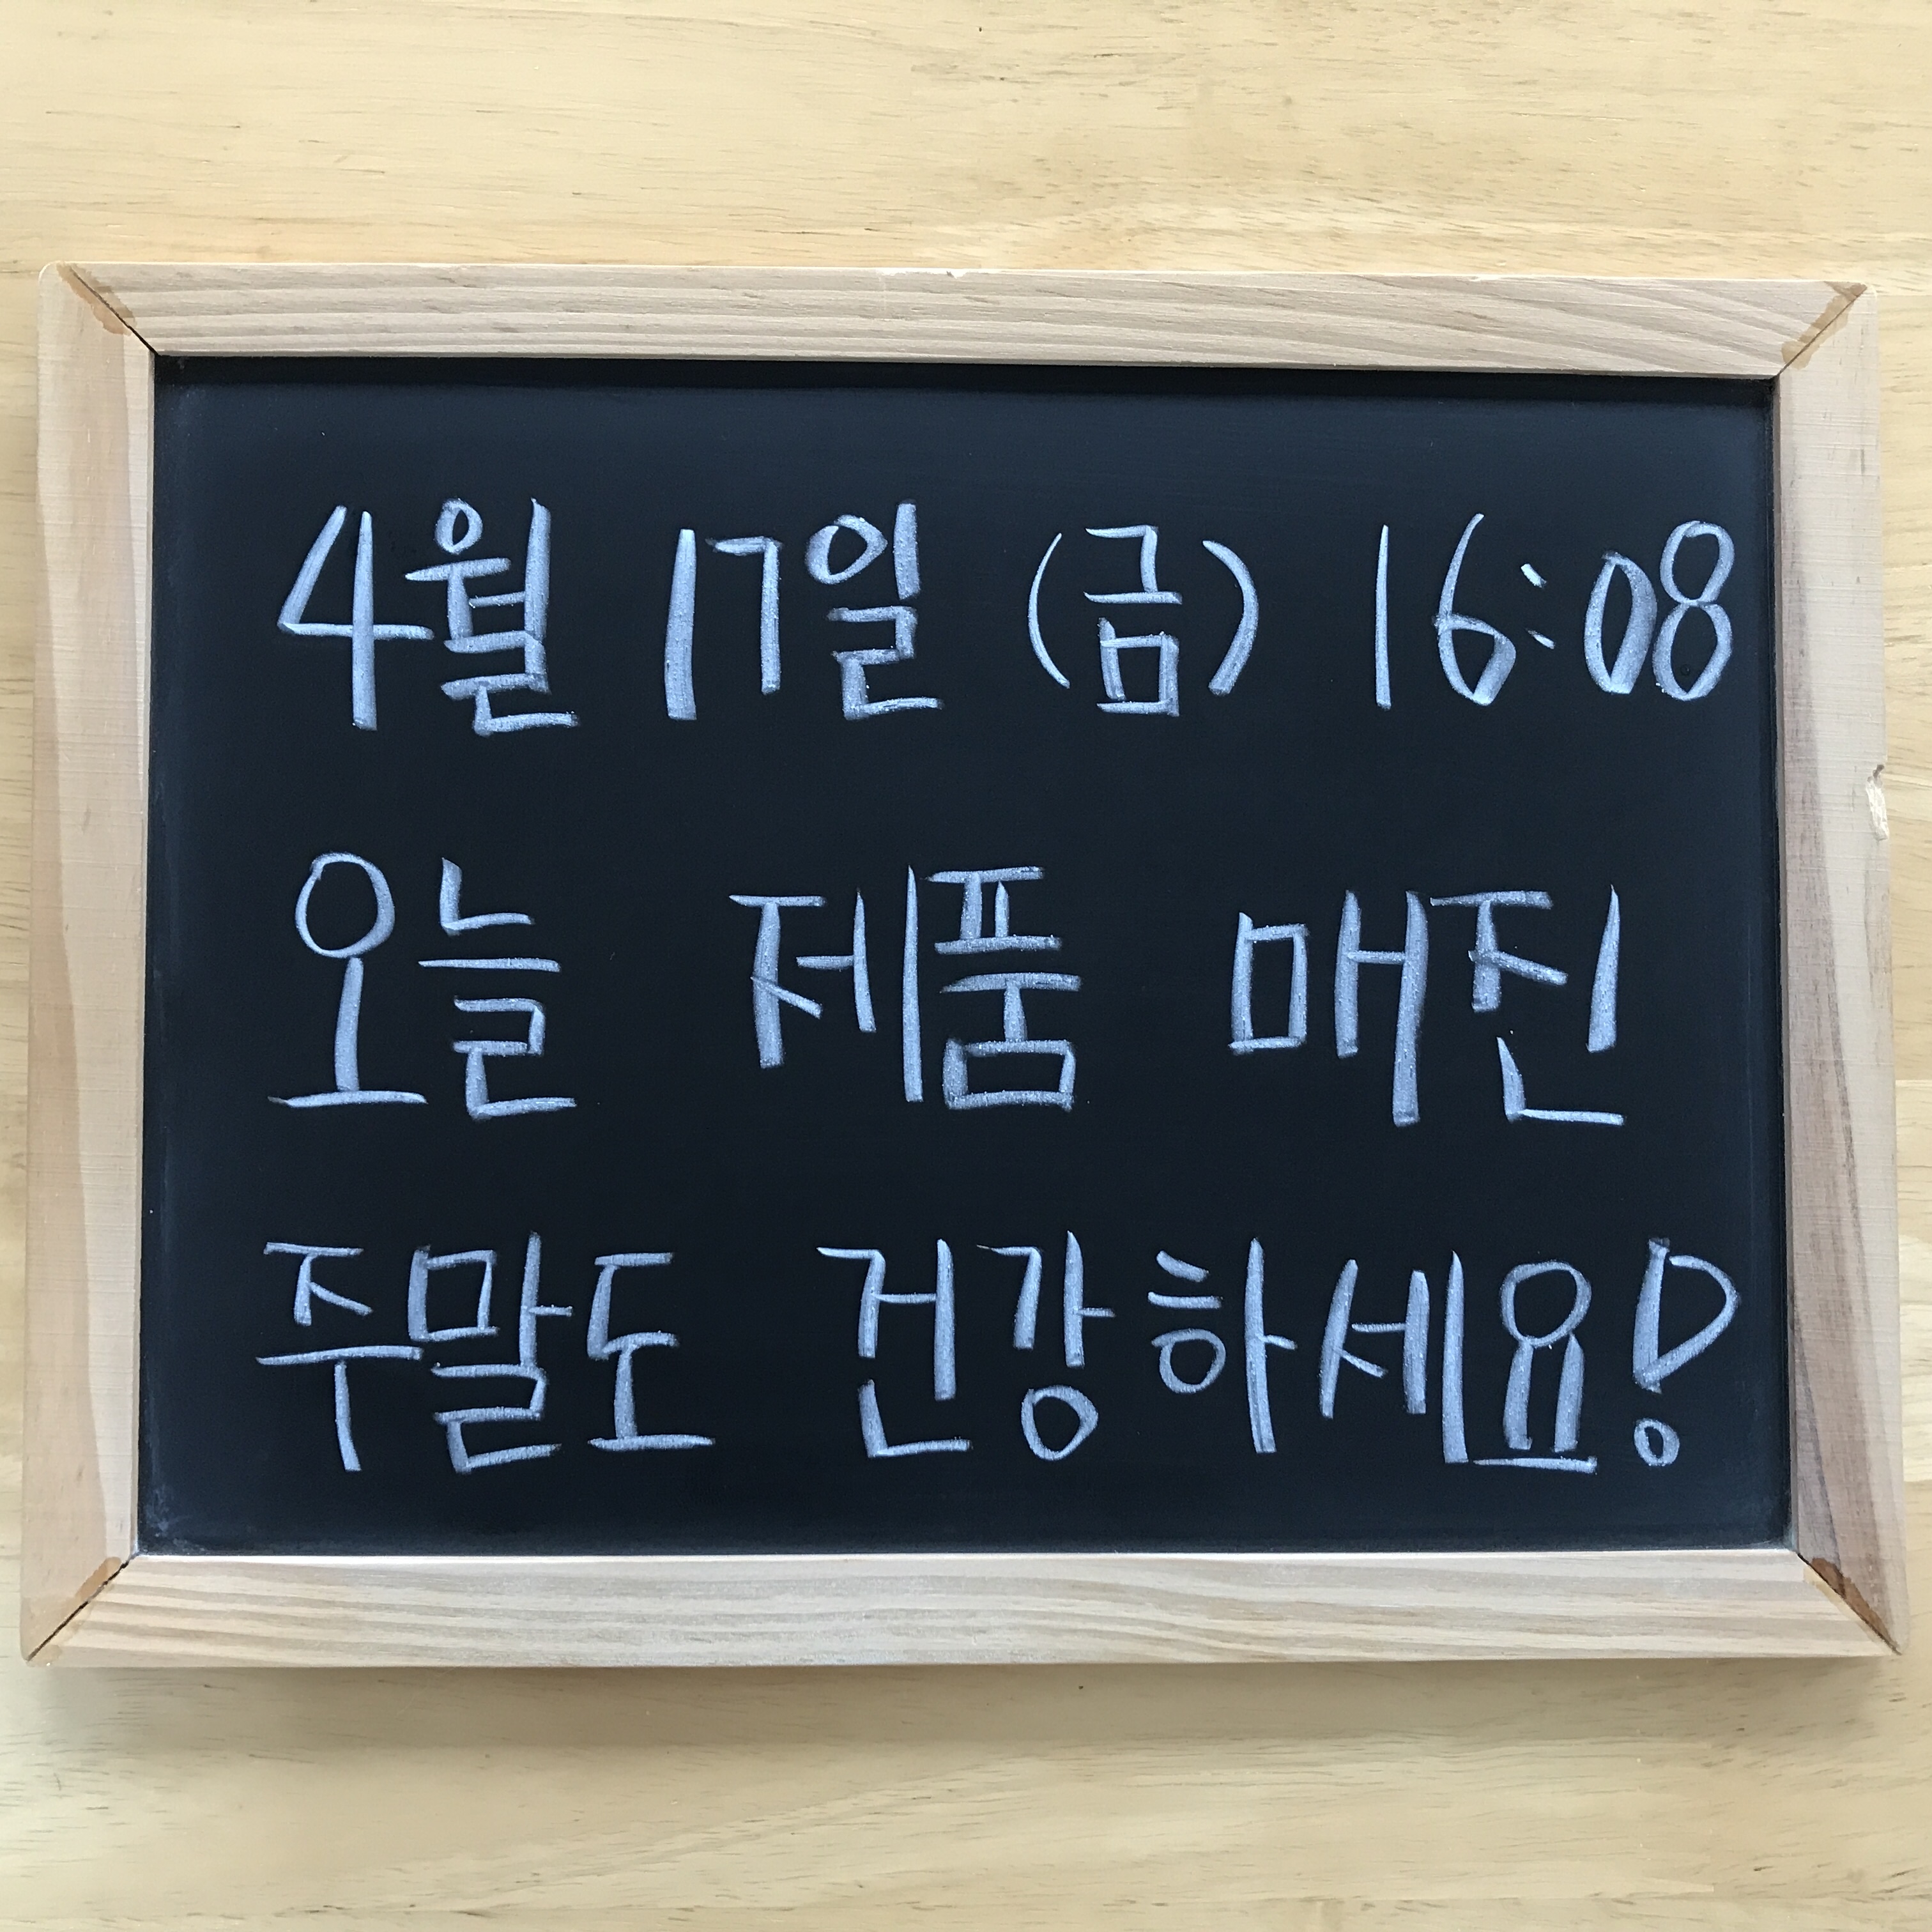 4월 17일 (금) 16:08
오늘 제품 매진
주말도 건강하세요!